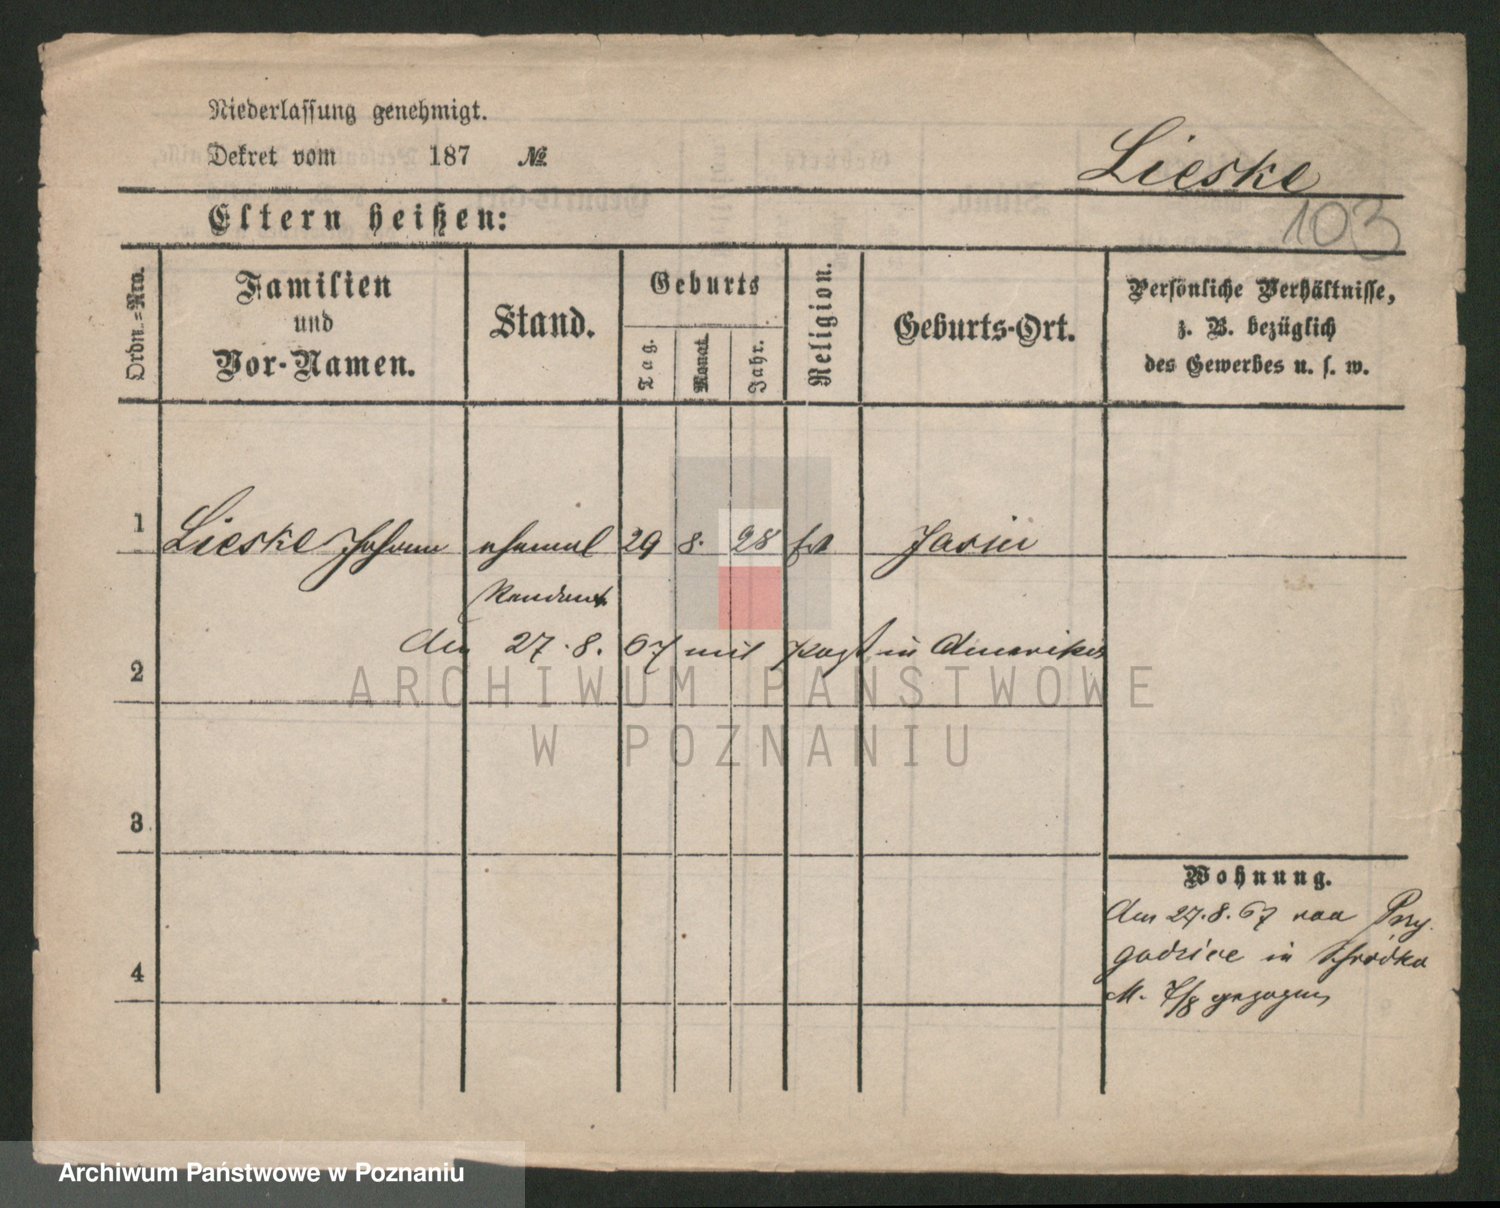 Niederlassung genehmigt.
Dekret vom 187 №
Lieske
103
Eltern heißen:
Ordn.-Nro.
Familien
und
Vor-Namen.
Stand.
Geburts
Tag.
Monat.
Jahr.
Religion.
Geburts-Ort.
Persönliche Verhältnisse,
z. B. bezüglich
des Gewerbes u. s. w.
1 Lieske Johann ehemal 29 8. 28 Jasin
Rendant
Am 27.8. 67 mit in Amerika
2
ARCHIWUM PAŃSTWOWE
W POZNANIU
3
Wohnung.
Am 27.8.67 von Przy-
godzice in Schrodka
M. 7/8 gezogen
4
Archiwum Państwowe w Poznaniu